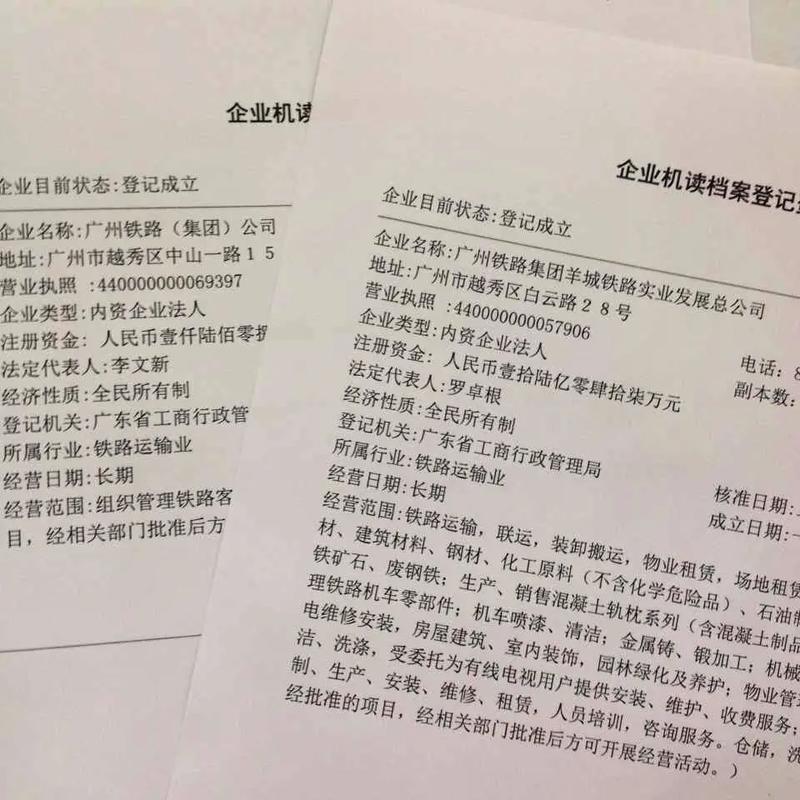 企业机读
企业目前状态:登记成立
企业名称:广州铁路（集团）公司
地址:广州市越秀区中山一路15
营业执照 :440000000069397
企业类型:内资企业法人
注册资金: 人民币壹仟陆佰零捌
法定代表人:李文新
经济性质:全民所有制
登记机关:广东省工商行政管
所属行业:铁路运输业
经营日期:长期
经营范围:组织管理铁路客
目，经相关部门批准后方
企业机读档案登记
企业目前状态:登记成立
企业名称:广州铁路集团羊城铁路实业发展总公司
地址:广州市越秀区白云路28号
营业执照 :440000000057906
企业类型:内资企业法人
电话:8
注册资金: 人民币壹拾陆亿零肆拾柒万元
副本数:
法定代表人:罗卓根
经济性质:全民所有制
登记机关:广东省工商行政管理局
所属行业:铁路运输业
核准日期:
经营日期:长期
成立日期:
经营范围:铁路运输，联运，装卸搬运，物业租赁，场地租赁
材、建筑材料、钢材、化工原料（不含化学危险品）、石油制
铁矿石、废钢铁；生产、销售混凝土轨枕系列（含混凝土制品
理铁路机车零部件；机车喷漆、清洁；金属铸、锻加工；机械
电维修安装，房屋建筑、室内装饰，园林绿化及养护；物业管理
洁、洗涤，受委托为有线电视用户提供安装、维护、收费服务；
制、生产、安装、维修、租赁，人员培训，咨询服务。仓储，洗
经批准的项目，经相关部门批准后方可开展经营活动。）